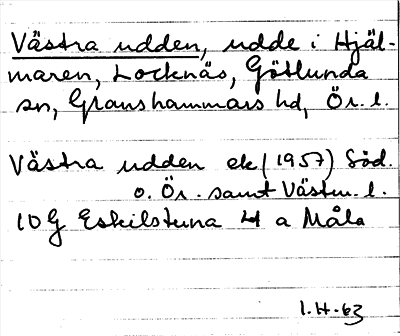 Västra udden, udde i Hjäl-
maren, Locknäs, Götlunda
sn, Glanshammars hd, Ör. l.
Västra udden ek (1957) Söd.
o. Ör. samt Västm. l.
10 G Eskilstuna 4 a Måla
1.H-63